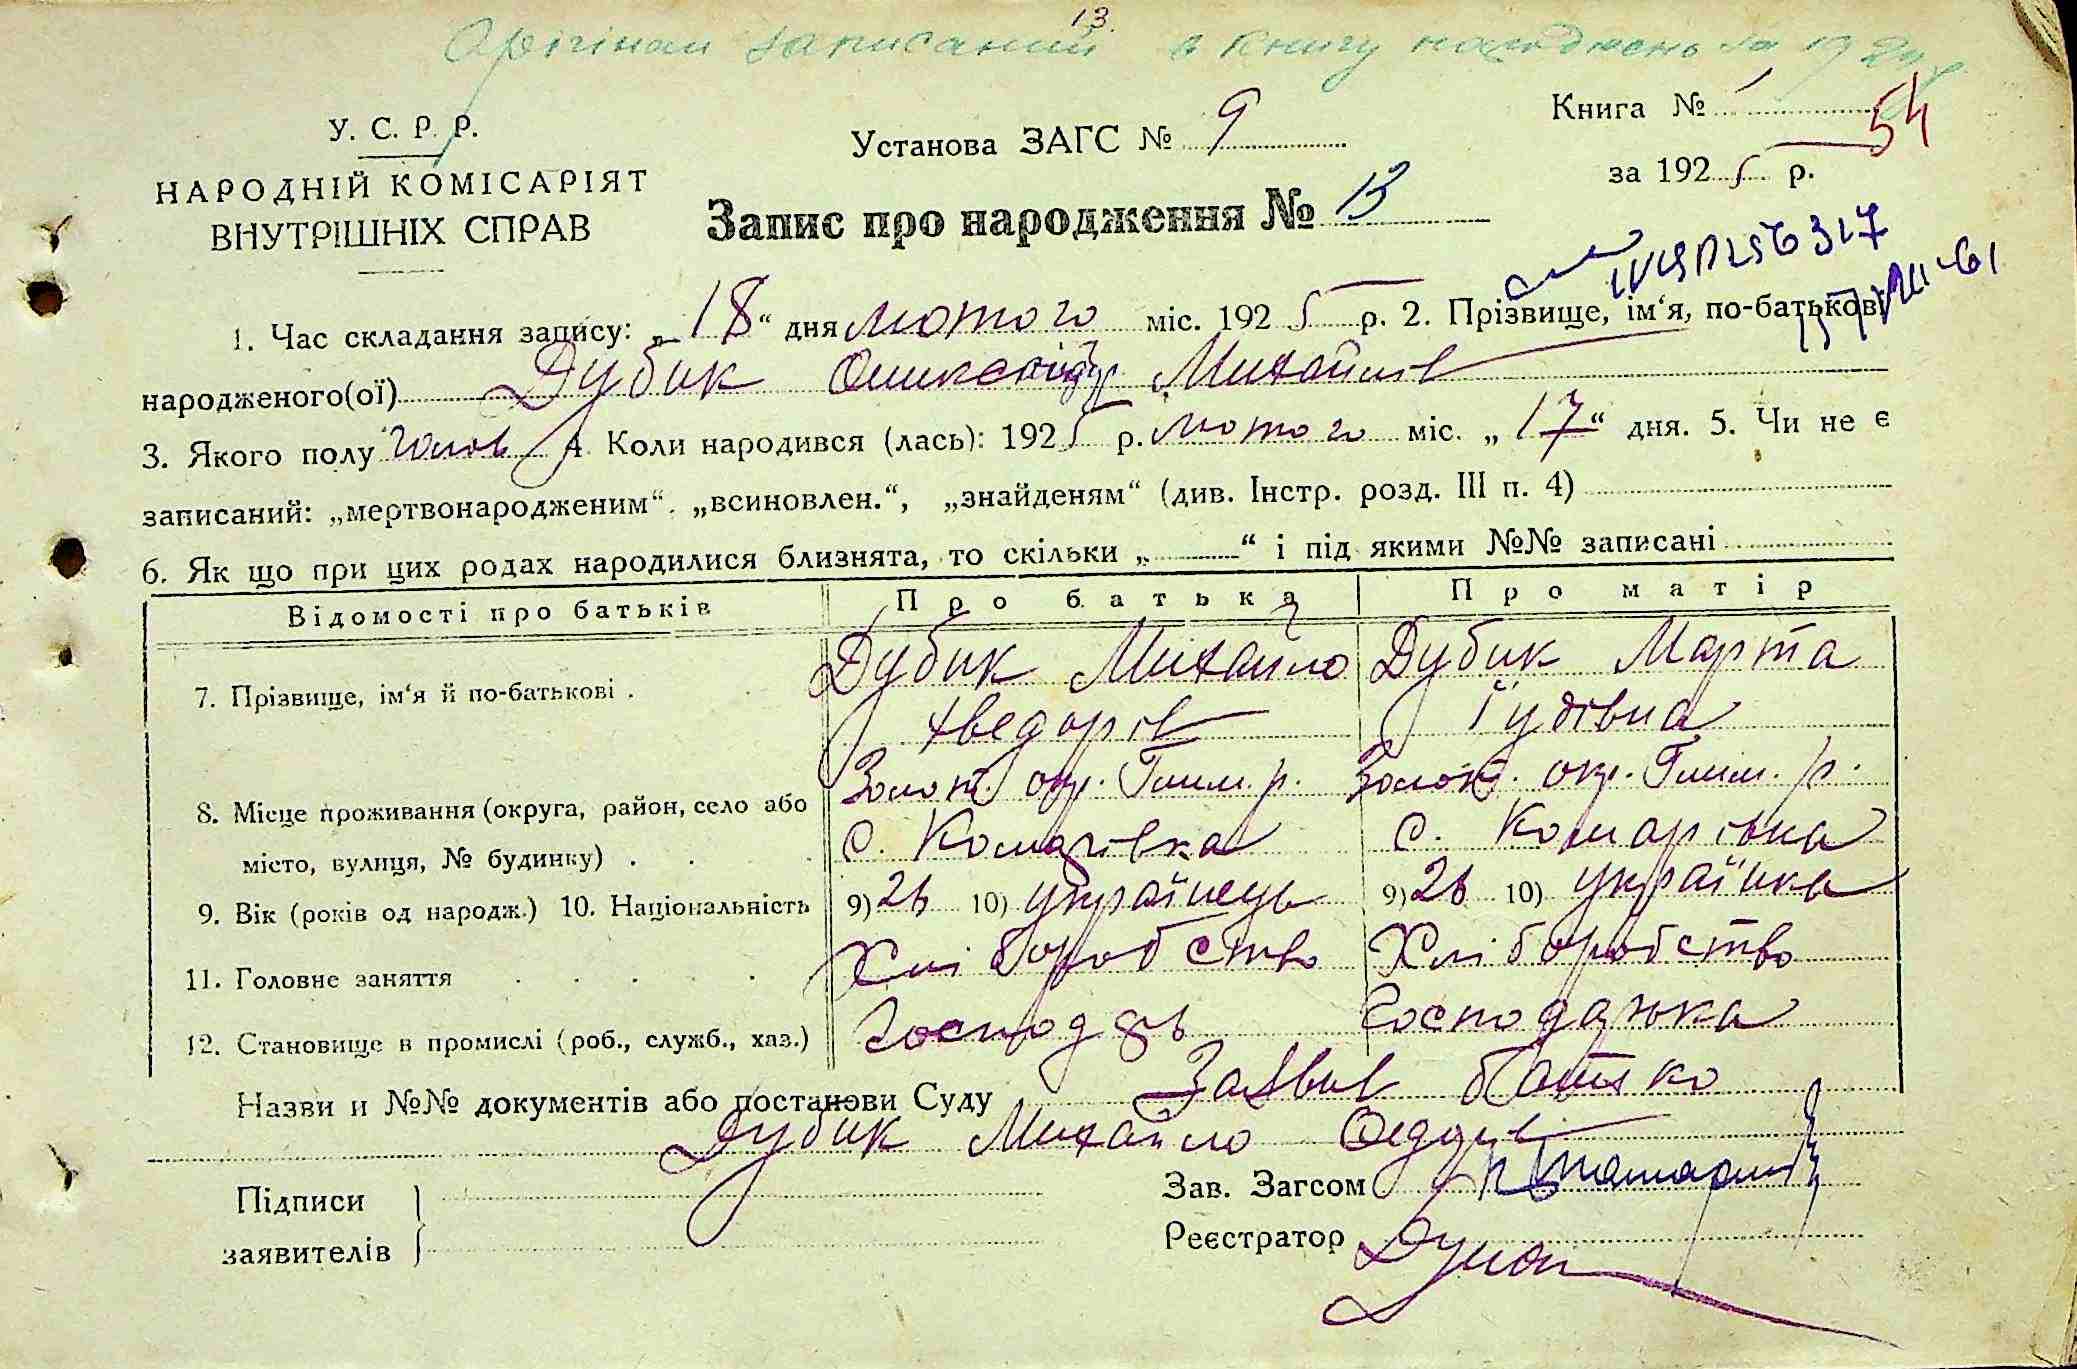 13.
Орігінал записаний в книгу народжень за 192
У. С. Р. Р.
НАРОДНІЙ КОМІСАРІЯТ
ВНУТРІШНІХ СПРАВ
Установа ЗАГС № 9
Книга № 1
54
за 1925 р.
Запис про народження № 13
1. Час складання запису: „18“ дня лютого міс. 1925 р. 2. Прізвище, ім‘я, по-батькові
народженого(ої) Дубик Олександр Михайлів
3. Якого полу чолов 4. Коли народився (лась): 1925 р. лютого міс. „17“ дня. 5. Чи не є
записаний: „мертвонародженим“. „всиновлен.“, „знайденям“ (див. Інстр. розд. III п. 4)
6. Як що при цих родах народилися близнята, то скільки „ “ і під якими №№ записані
Відомості про батьків Про батька Про матір
7. Прізвище, ім‘я й по-батькові . Дубик Михайло Дубик Марта
Хведорів Гудівна
Золот. окр. Гельм. р. Золот. окр. Гельм. р.
8. Місце проживання (округа, район, село або
місто, вулиця, № будинку) . . . с. Комарівка с. Комарівка
9. Вік (років од народж.) 10. Національність 9) 26 10) українець 9) 26 10) українка
11. Головне заняття . . . . Хліборобство Хліборобство
12. Становище в промислі (роб., служб., хаз.) Господарь Господарька
Назви и №№ документів або постанови Суду Заявив батько
Дубик Михайло Федорів
Підписи
заявителів
Зав. Загсом
Реєстратор